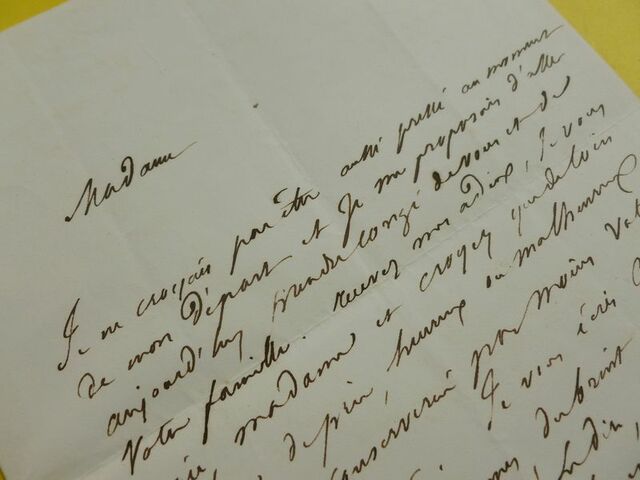 Madame
Je ne croyais pas être aussi pressé au moment
de mon départ et Je me proposais d'aller
aujourd'huy prendre congé de vous et de
Votre famille. recevez mes adieux, Je vous
madame et croyez que de loin
de près, heureux ou malheureux
conserverai pas moins
Je vous écris
du brint